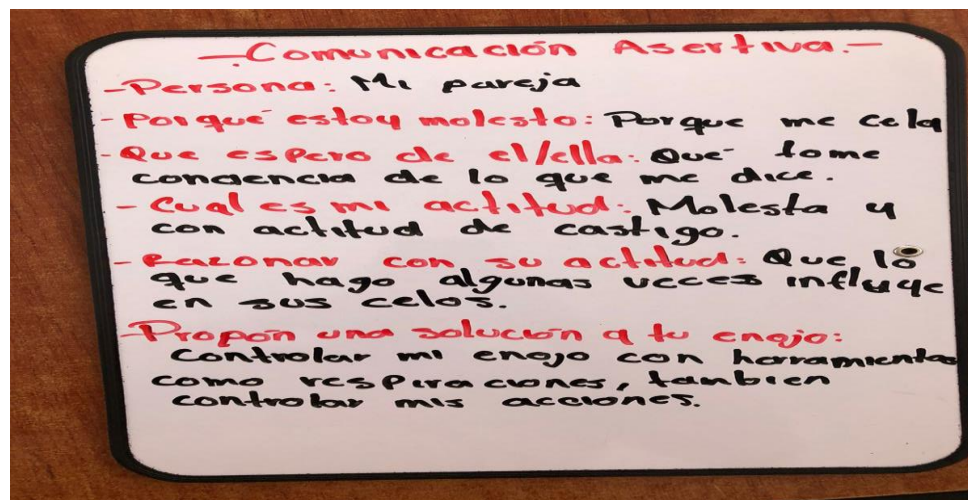 -Comunicación Asertiva.-
-Persona: Mi pareja
-Porqué estoy molesto: Porque me cela
-Que espero de el/ella: Que tome
conciencia de lo que me dice.
-Cual es mi actitud: Molesta y
con actitud de castigo.
-Razonar con su actitud: Que lo
que hago algunas veces influye
en sus celos.
-Propon una solución a tu enojo:
Controlar mi enojo con herramientas
como respiraciones, tambien
controlar mis acciones.